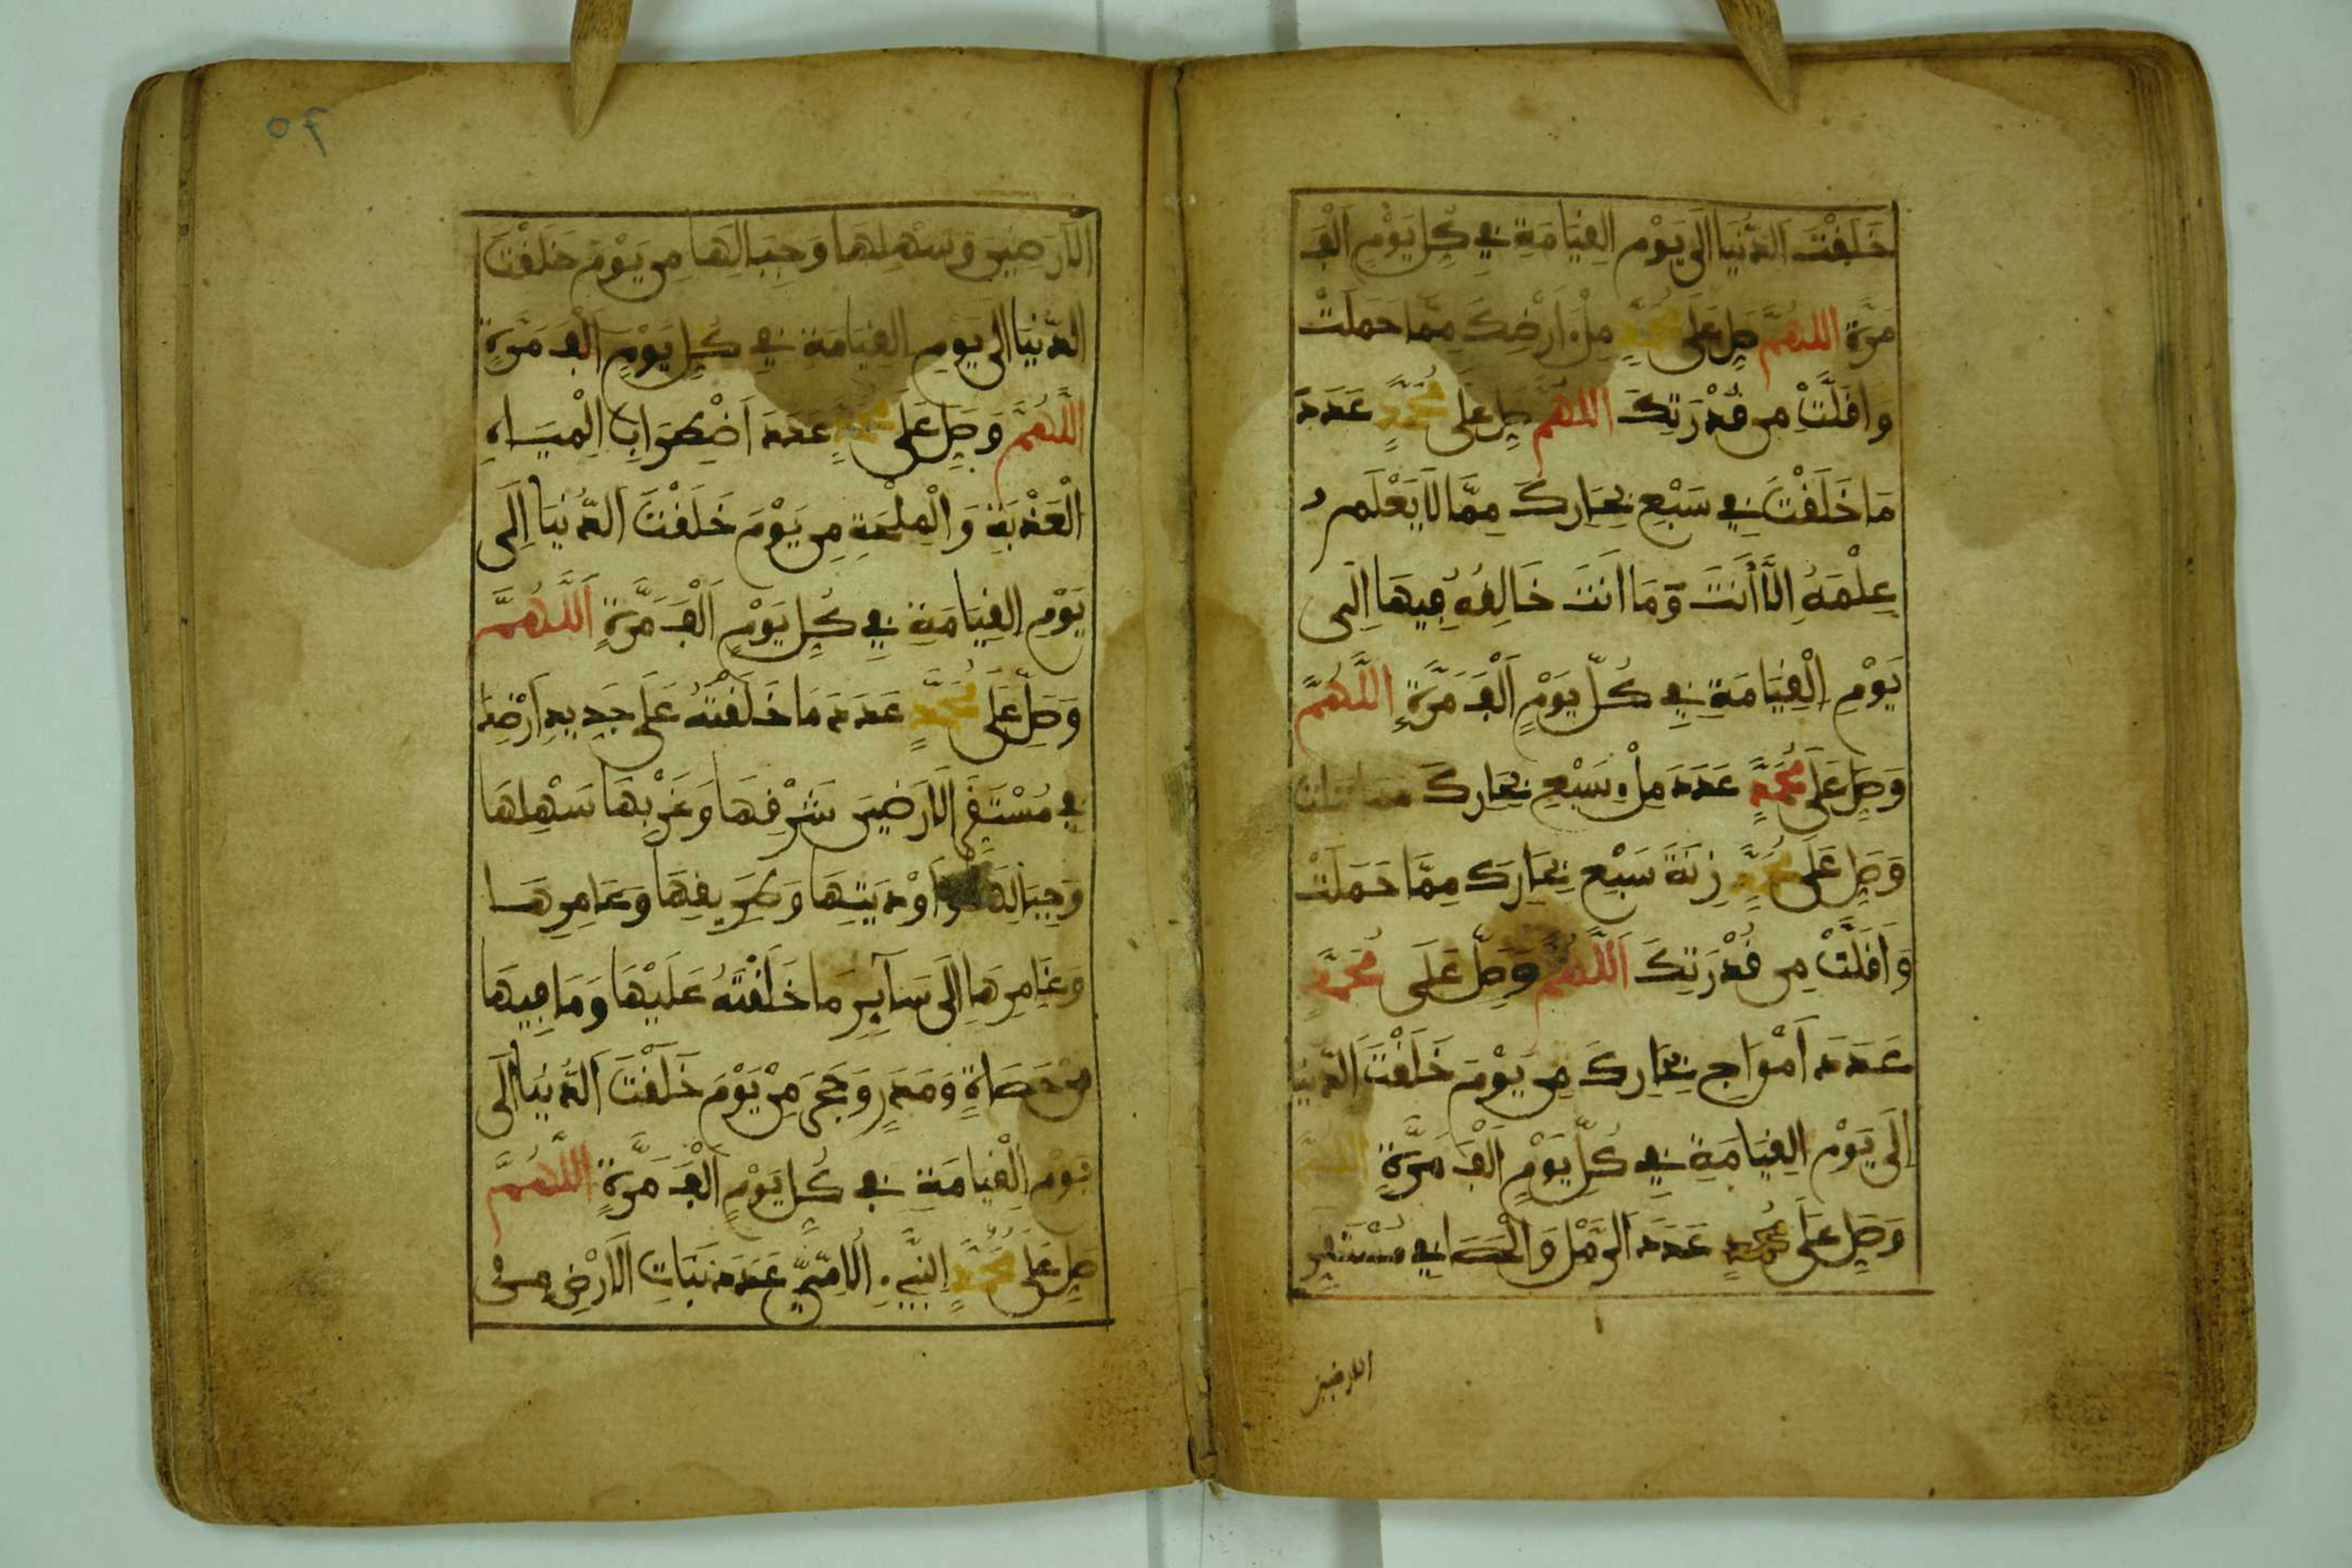 خَلَقْتَ الدُّنْيَا إِلَى يَوْمِ الْقِيَامَةِ فِي كُلِّ يَوْمٍ أَلْفَ
مَرَّةٍ اللَّهُمَّ صَلِّ عَلَى مُحَمَّدٍ مِلْءَ أَرْضِكَ مِمَّا حَمَلَتْ
وَأَقَلَّتْ مِن قُدْرَتِكَ اللَّهُمَّ صَلِّ عَلَى مُحَمَّدٍ عَدَدَ
مَا خَلَقْتَ فِي سَبْعِ بِحَارِكَ مِمَّا لَا يَعْلَمُ
عِلْمَهُ إِلَّا أَنتَ وَمَا أَنتَ خَالِقُهُ فِيهَا إِلَى
يَوْمِ الْقِيَامَةِ فِي كُلِّ يَوْمٍ أَلْفَ مَرَّةٍ اللَّهُمَّ
وَصَلِّ عَلَى مُحَمَّدٍ عَدَدَ مِلْءِ سَبْعِ بِحَارِكَ
وَصَلِّ عَلَى مُحَمَّدٍ زِنَةَ سَبْعِ بِحَارِكَ مِمَّا حَمَلَتْ
وَأَقَلَّتْ مِن قُدْرَتِكَ اللَّهُمَّ وَصَلِّ عَلَى مُحَمَّدٍ
عَدَدَ أَمْوَاجِ بِحَارِكَ مِن يَوْمِ خَلَقْتَ الدُّنْيَا
إِلَى يَوْمِ الْقِيَامَةِ فِي كُلِّ يَوْمٍ أَلْفَ مَرَّةٍ اللَّهُمَّ
وَصَلِّ عَلَى مُحَمَّدٍ عَدَدَ الرَّمْلِ وَالْحَصَا فِي مُسْتَقَرِّ
الارضين
٦٥
الْأَرَضِينَ وَسَهْلِهَا وَجِبَالِهَا مِن يَوْمِ خَلَقْتَ
الدُّنْيَا إِلَى يَوْمِ الْقِيَامَةِ فِي كُلِّ يَوْمٍ أَلْفَ مَرَّةٍ
اللَّهُمَّ وَصَلِّ عَلَى مُحَمَّدٍ عَدَدَ اضْطِرَابِ الْمِيَاهِ
الْعَذْبَةِ وَالْمِلْحَةِ مِن يَوْمِ خَلَقْتَ الدُّنْيَا إِلَى
يَوْمِ الْقِيَامَةِ فِي كُلِّ يَوْمٍ أَلْفَ مَرَّةٍ اللَّهُمَّ
وَصَلِّ عَلَى مُحَمَّدٍ عَدَدَ مَا خَلَقْتَهُ عَلَى جَدِيدِ أَرْضِكَ
فِي مُسْتَقَرِّ الْأَرَضِينَ شَرْقِهَا وَغَرْبِهَا سَهْلِهَا
وَجِبَالِهَا وَأَوْدِيَتِهَا وَطَرِيقِهَا وَعَامِرِهَا
وَغَامِرِهَا إِلَى سَآئِرِ مَا خَلَقْتَهُ عَلَيْهَا وَمَا فِيهَا
مِنْ حَصَاةٍ وَمَدَرٍ وَحَجَرٍ مِنْ يَوْمِ خَلَقْتَ الدُّنْيَا إِلَى
يَوْمِ الْقِيَامَةِ فِي كُلِّ يَوْمٍ أَلْفَ مَرَّةٍ اللَّهُمَّ
صَلِّ عَلَى مُحَمَّدٍ النَّبِيءِ الْأُمِّيِّ عَدَدَ نَبَاتِ الْأَرْضِ مِن